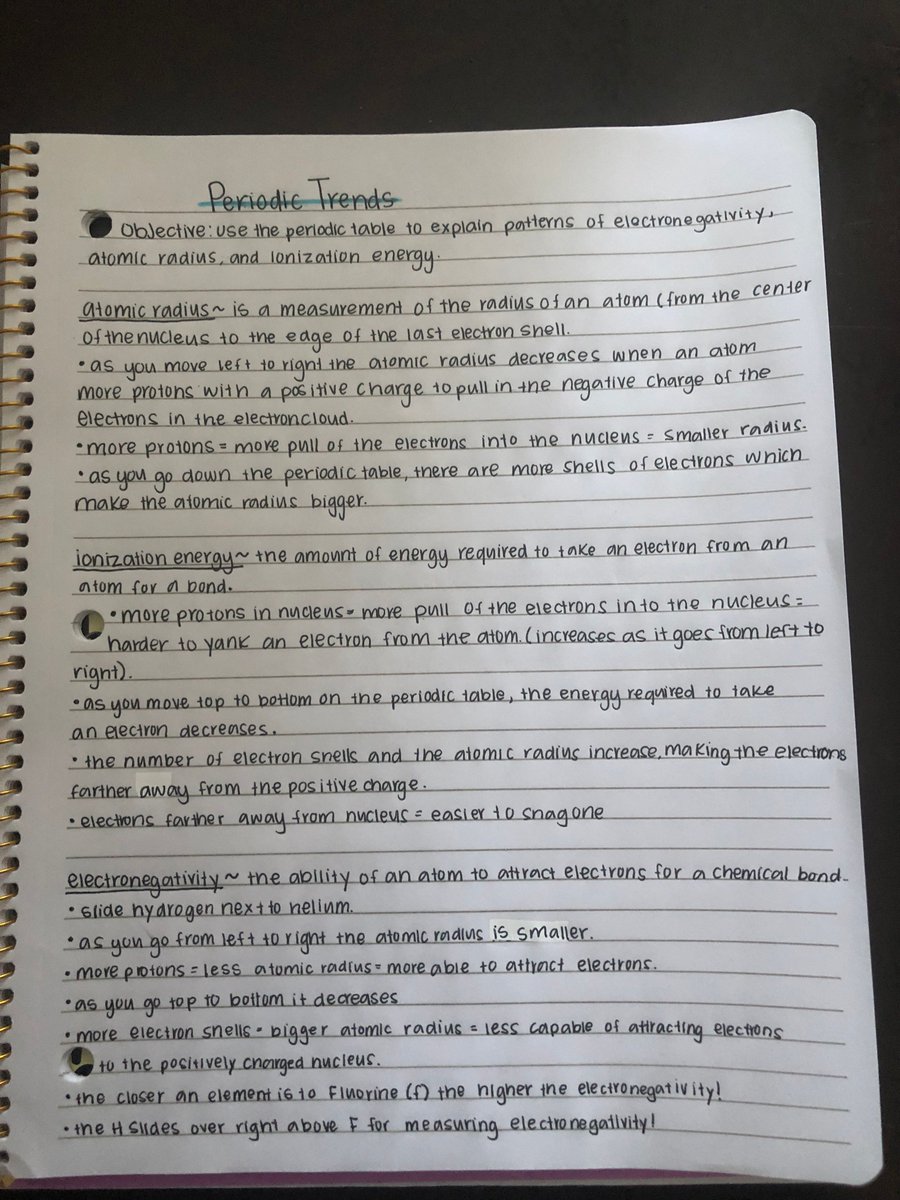 Periodic Trends
Objective: use the periodic table to explain patterns of electronegativity,
atomic radius, and ionization energy.
atomic radius~ is a measurement of the radius of an atom (from the center
of the nucleus to the edge of the last electron shell.
•as you move left to right the atomic radius decreases when an atom
more protons with a positive charge to pull in the negative charge of the
electrons in the electroncloud.
•more protons = more pull of the electrons into the nucleus = smaller radius.
•as you go down the periodic table, there are more shells of electrons which
make the atomic radius bigger.
ionization energy~ the amount of energy required to take an electron from an
atom for a bond.
•more protons in nucleus = more pull of the electrons into the nucleus =
harder to yank an electron from the atom. (increases as it goes from left to
right).
•as you move top to bottom on the periodic table, the energy required to take
an electron decreases.
•the number of electron shells and the atomic radius increase, making the electrons
farther away from the positive charge.
•electrons farther away from nucleus = easier to snag one
electronegativity~ the ability of an atom to attract electrons for a chemical bond.
•slide hydrogen next to helium.
•as you go from left to right the atomic radius is smaller.
•more protons = less atomic radius = more able to attract electrons.
•as you go top to bottom it decreases
•more electron shells = bigger atomic radius = less capable of attracting electrons
to the positively charged nucleus.
•the closer an element is to Fluorine (f) the higher the electronegativity!
•the H slides over right above F for measuring electronegativity!